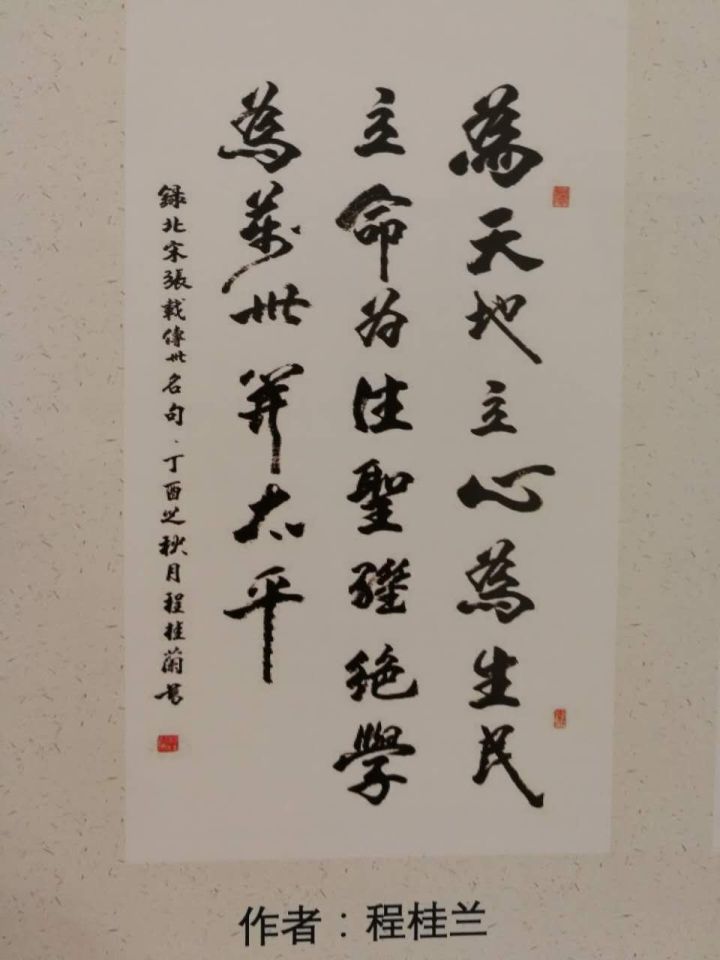 為天地立心為生民
立命为往聖繼絶學
為萬世開太平
録北宋張載傳世名句.丁酉之秋月程桂蘭書
作者：程桂兰